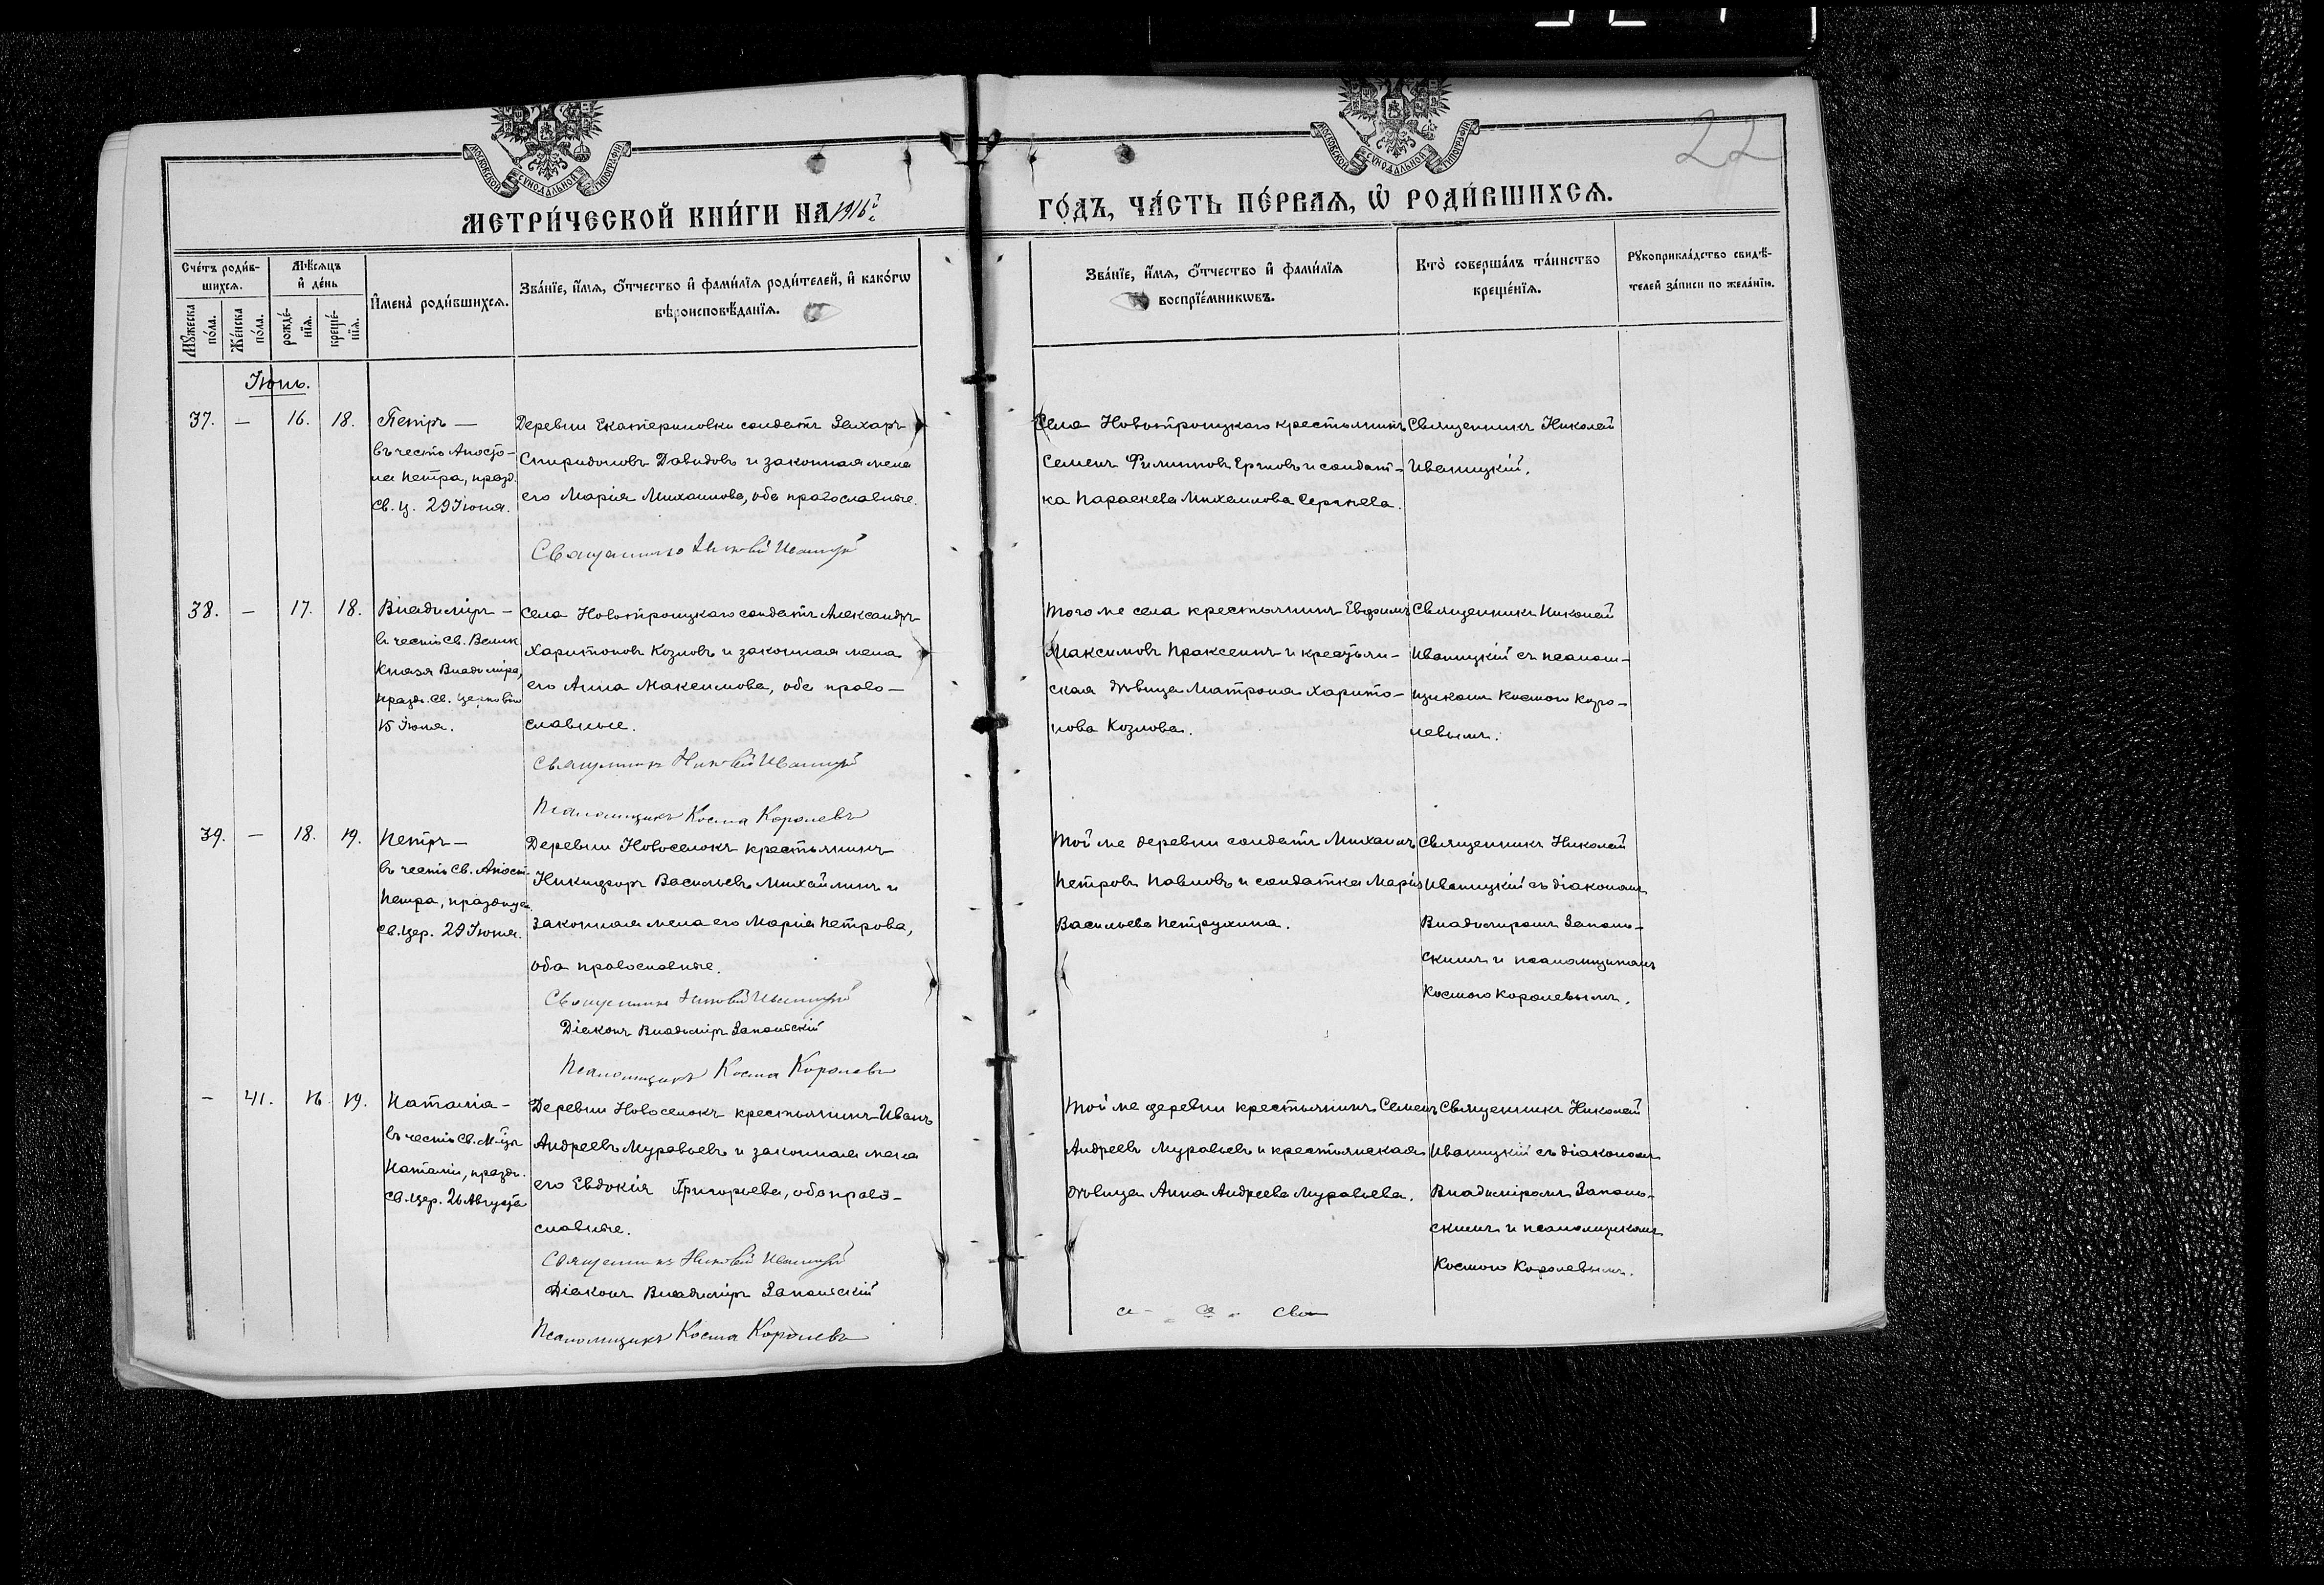 МОСКОВСКОЙ СѴНОДАЛЬНОЙ ТИПОГРАФІИ
МОСКОВСКОЙ СѴНОДАЛЬНОЙ ТИПОГРАФІИ
22
МЕТРИ́ЧЕСКОЙ КНИ́ГИ НА 1916й
ГО́ДЪ, ЧА́СТЬ ПЕ́РВАѦ, Ѽ РОДИ́ВШИХСѦ.
Сче́тъ роди́в-
шихсѧ.
Мꙋ́жеска
по́ла.
Же́нска
по́ла.
Мѣ́сѧцъ
и҆ де́нь
рожде́-
нїѧ.
креще́-
нїѧ.
И҆мена̀ роди́вшихсѧ.
Зва́нїе, и҆́мѧ, ѻ҆́тчество и҆ фами́лїѧ роди́телей, и҆ како́гѡ
вѣроисповѣ́данїѧ.
Зва́нїе, и҆́мѧ, ѻ҆́тчество и҆ фами́лїѧ
воспрїе́мникѡвъ.
Кто̀ соверша́лъ та́инство
креще́нїѧ.
Рꙋкоприкла́дство свидѣ́-
телей за́писи по жела́нїю.
Іюнь.
37. — 16. 18.
Петръ —
въ честь Апосто-
ла Петра, празд.
Св. ц. 29 Іюня.
Деревни Екатериновки солдатъ Захаръ
Спиридоновъ Давидовъ и законная жена
его Марія Михаилова, оба православные.
Священникъ Николай Иваницкій
Села Новотроицкаго крестьянинъ
Семенъ Филиппов и солдат-
ка Параскева Михаилова Сергѣева.
Священникъ Николай
Иваницкій.
38. — 17. 18.
Владиміръ —
въ честь Св. Велик.
Князя Владиміра,
празд. Св. Церковью
15 Іюля.
Села Новотроицкаго солдатъ Александръ
Харитоновъ Козловъ и законная жена
его Анна Максимова, оба право-
славные.
Священникъ Николай Иваницкій
Псаломщикъ Косма Королевъ
Того же села крестьянинъ Евфимъ
Максимовъ Праксеинъ и крестьян-
ская дѣвица Матрона Харито-
нова Козлова.
Священникъ Николай
Иваницкій съ псалом-
щикомъ Космою Коро-
левымъ.
39. — 18. 19.
Петръ —
въ честь Св. Апост.
Петра, празднуем.
Св. Цер. 29 Іюня.
Деревни Новоселокъ крестьянинъ
Никифоръ Васильевъ Михайлинъ и
законная жена его Марія Петрова,
оба православные.
Священникъ Николай Иваницкій
Діаконъ Владиміръ Запольскій
Псаломщикъ Косма Королевъ
Той же деревни солдатъ Михаилъ
Петровъ Павловъ и солдатка Марія
Васильева Петрухина.
Священникъ Николай
Иваницкій съ діакономъ
Владиміромъ Заполь-
скимъ и псаломщикомъ
Космою Королевымъ.
— 41. 16 19.
Наталія —
въ честь Св. М-цы
Наталіи, праздн.
Св. Цер. 26 Августа
Деревни Новоселокъ крестьянинъ Иванъ
Андреевъ Муравьевъ и законная жена
его Евдокія Григорьева, оба право-
славные.
Священникъ Николай Иваницкій
Діаконъ Владиміръ Запольскій
Псаломщикъ Косма Королевъ
Той же деревни крестьянинъ Семенъ
Андреевъ Муравьевъ и крестьянская
дѣвица Анна Андреева Муравьева.
Священникъ Николай
Иваницкій съ діакономъ
Владиміромъ Заполь-
скимъ и псаломщикомъ
Космою Королевымъ.